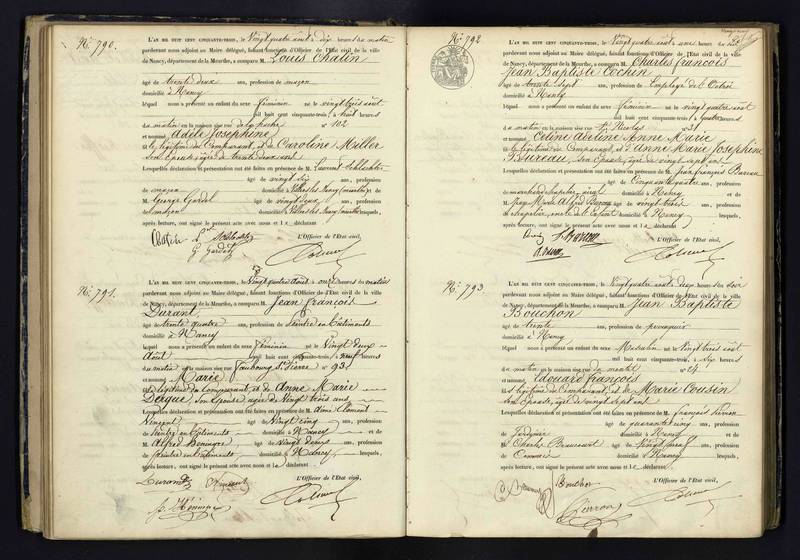 N°. 790.
L'AN MIL HUIT CENT CINQUANTE-TROIS, le Vingt quatre août à dix heures du matin
pardevant nous adjoint au Maire délégué, faisant fonctions d'Officier de l'État civil de la ville
de Nancy, département de la Meurthe, a comparu M. Louis Chatin
âgé de trente deux ans, profession de maçon
domicilié à Nancy
lequel nous a présenté un enfant du sexe féminin né le vingt trois août
mil huit cent cinquante-trois à huit heures
du matin en la maison sise rue N° 102
et nommé Adèle Joséphine
fille légitime du Comparant, et de Caroline Miller
son Épouse âgée de trente deux ans
Lesquelles déclaration et présentation ont été faites en présence de M. Laurent Schlachter
âgé de vingt six ans, profession
de maçon domicilié à et de
M. George Gardel âgé de vingt deux ans, profession
de maçon domicilié à lesquels,
après lecture, ont signé le présent acte avec nous et le déclarant.
Chatin
G Gardel
L'Officier de l'État civil,
N°. 791.
L'AN MIL HUIT CENT CINQUANTE-TROIS, le Vingt quatre Août à onze heures du matin
pardevant nous adjoint au Maire délégué, faisant fonctions d'Officier de l'État civil de la ville
de Nancy, département de la Meurthe, a comparu M. Jean François
Durant
âgé de trente quatre ans, profession de Peintre en Bâtiments
domicilié à Nancy
lequel nous a présenté un enfant du sexe féminin né le Vingt deux
Août mil huit cent cinquante-trois à neuf heures
du matin en la maison sise rue Faubourg St Pierre N° 93
et nommé Marie
fille légitime du comparant et de Anne Marie
son épouse âgée de Vingt trois ans
Lesquelles déclaration et présentation ont été faites en présence de M. Aimé Clement
Vincent âgé de Vingt cinq ans, profession
de Peintre en Bâtiments domicilié à Nancy et de
M. Alfred âgé de Vingt deux ans, profession
de Peintre en bâtiments domicilié à Nancy lesquels,
après lecture, ont signé le présent acte avec nous et le déclarant.
Durand Vincent
L'Officier de l'État civil,
N°. 792
L'AN MIL HUIT CENT CINQUANTE-TROIS, le Vingt quatre août à onze heures du
pardevant nous adjoint au Maire délégué, faisant fonctions d'Officier de l'État civil de la ville
de Nancy, département de la Meurthe, a comparu M. Charles françois
Jean Baptiste Cochin
âgé de trente Sept ans, profession de Employé de l'Octroi
domicilié à Nancy
lequel nous a présenté un enfant du sexe féminin né le vingt quatre août
mil huit cent cinquante-trois à quatre heures
du matin en la maison sise rue St Nicolas N° 31
et nommé Céline Anne Marie
fille légitime du Comparant, et d'Anne Marie Joséphine
Bureau, son Épouse, âgée de vingt sept ans
Lesquelles déclaration et présentation ont été faites en présence de M. Jean françois Bureau
âgé de Cinquante quatre ans, profession
de marchand chapelier, aïeul domicilié à Nancy et de
M. Alfred Bureau âgé de vingt trois ans, profession
de chapelier, oncle de l'enfant domicilié à Nancy lesquels,
après lecture, ont signé le présent acte avec nous et le déclarant.
L'Officier de l'État civil,
N°. 793
L'AN MIL HUIT CENT CINQUANTE-TROIS, le Vingt quatre août à deux heures du soir
pardevant nous adjoint au Maire délégué, faisant fonctions d'Officier de l'État civil de la ville
de Nancy, département de la Meurthe, a comparu M. Jean Baptiste
Bouchon
âgé de trente ans, profession de perruquier
domicilié à Nancy
lequel nous a présenté un enfant du sexe Masculin né le Vingt trois août
mil huit cent cinquante-trois à six heures
du matin en la maison sise rue N° 24
et nommé Édouard françois
fils légitime du Comparant, et de Marie Cousin
son Épouse, âgée de vingt sept ans
Lesquelles déclaration et présentation ont été faites en présence de M. françois Pierron
âgé de quarante cinq ans, profession
de domicilié à Nancy et de
M. Charles âgé de vingt neuf ans, profession
de Commis domicilié à Nancy lesquels,
après lecture, ont signé le présent acte avec nous et le déclarant.
Bouchon
Pierron
L'Officier de l'État civil,